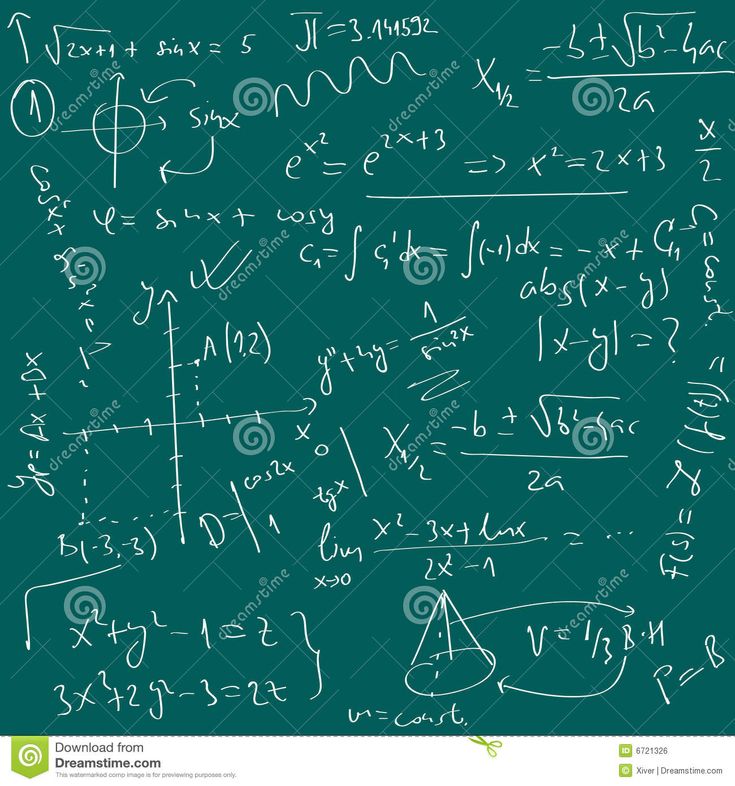 √2x+1 + sinx = 5
π = 3.141592
X₁/₂ = -b ± √b²-4ac / 2a
1
sinx
e^x² = e^2x+3 => x² = 2x+3
x/2
φ = sinx + cosy
C₁ = ∫ C₁'dx = ∫(-1)dx = -x + C₁
C₁ = const.
abs(x-y)
|x-y| = ?
y
A(1,2)
y'' + 4y = 1/sin²x
x
X₁/₂ = -b ± √b²-4ac / 2a
B(-3,-3)
D = | cos2x 0
1 tgx |
lim x→0 x²-3x+lnx / 2x²-1 = ...
x²+y²-1=z
3x²+2y²-3=2z
V=1/3 B·H
P=B
m=const.
dreamstime
Download from
Dreamstime.com
This watermarked comp image is for previewing purposes only.
ID 6721326
© Xiver | Dreamstime.com